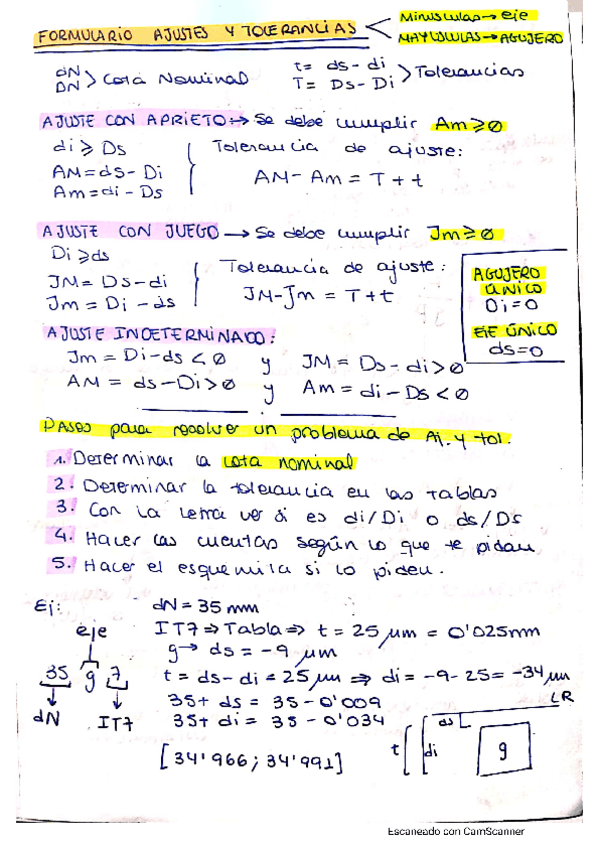 FORMULARIO AJUSTES Y TOLERANCIAS
Minusculas → eje
MAYUSCULAS → AGUJERO
dN
DN > Cota Nominal
t = ds - di
T = Ds - Di > Tolerancias
AJUSTE CON APRIETO → Se debe cumplir Am ≥ 0
di ≥ Ds
AM = dS - Di
Am = di - Ds
Tolerancia de ajuste:
AM - Am = T + t
AJUSTE CON JUEGO → Se debe cumplir Jm ≥ 0
Di ≥ ds
JM = Ds - di
Jm = Di - ds
Tolerancia de ajuste:
JM - Jm = T + t
AGUJERO
ÚNICO
Di = 0
EJE ÚNICO
ds = 0
AJUSTE INDETERMINADO:
Jm = Di - ds < 0 y JM = Ds - di > 0
AM = ds - Di > 0 y Am = di - Ds < 0
Pasos para resolver un problema de Aj. y tol.
1. Determinar la cota nominal
2. Determinar la tolerancia en las Tablas
3. Con la letra ver si es di/Di o ds/Ds
4. Hacer las cuentas según lo que te pidan
5. Hacer el esquemita si lo piden.
Ej:
eje
35 g 7
dN IT7
dN = 35 mm
IT7 ⇒ Tabla ⇒ t = 25 μm = 0'025mm
g → ds = -9 μm
t = ds - di = 25 μm ⇒ di = -9 - 25 = -34 μm
35 + ds = 35 - 0'009
35 + di = 35 - 0'034
[34'966 ; 34'991]
LR
ds
t
di
g
Escaneado con CamScanner